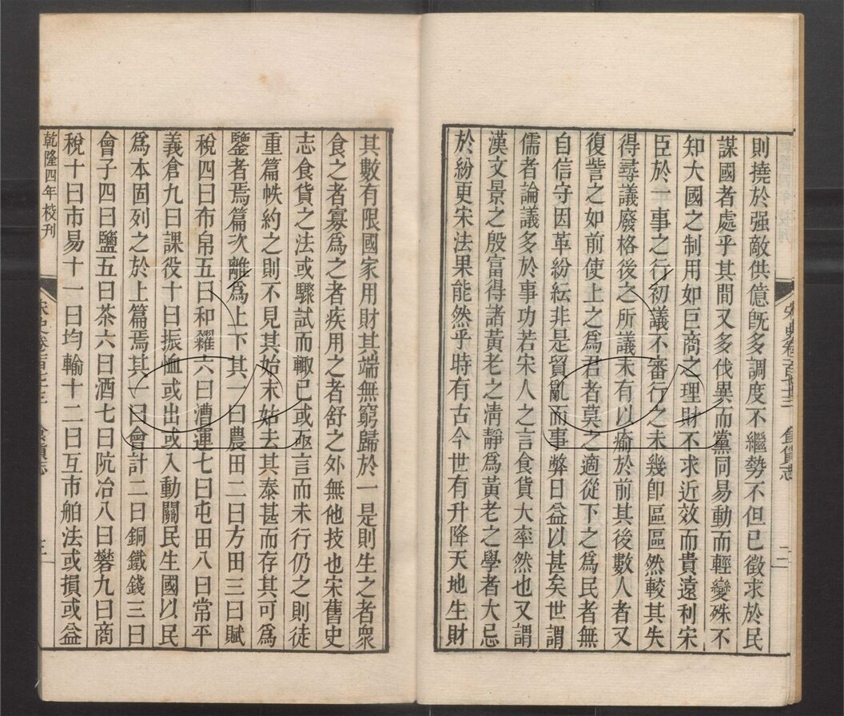 則撓於强敵供億旣多調度不繼勢不但已徵求於民
謀國者處乎其間又多伐異而黨同易動而輕變殊不
知大國之制用如巨商之理財不求近效而貴遠利宋
臣於一事之行初議不審行之未幾卽區區然較其失
得尋議廢格後之所議未有以瘉於前其後數人者又
復訾之如前使上之爲君者莫之適從下之爲民者無
自信守因革紛紜非是貿亂而事弊日益以甚矣世謂
儒者論議多於事功若宋人之言食貨大率然也又謂
漢文景之殷富得諸黃老之淸靜爲黃老之學者大忌
於紛更宋法果能然乎時有古今世有升降天地生財
其數有限國家用財其端無窮歸於一是則生之者衆
食之者寡爲之者疾用之者舒之外無他技也宋舊史
志食貨之法或驟試而輒已或亟言而未行仍之則徒
重篇帙約之則不見其始末姑去其泰甚而存其可爲
鑒者焉篇次離爲上下其一曰農田二曰方田三曰賦
稅四曰布帛五曰和糴六曰漕運七曰屯田八曰常平
義倉九曰課役十曰振恤或出或入動關民生國以民
爲本固列之於上篇焉其一曰會計二曰銅鐵錢三曰
會子四曰鹽五曰茶六曰酒七曰阬冶八曰礬九曰商
稅十曰市易十一曰均輸十二曰互市舶法或損或益
乾隆四年校刊